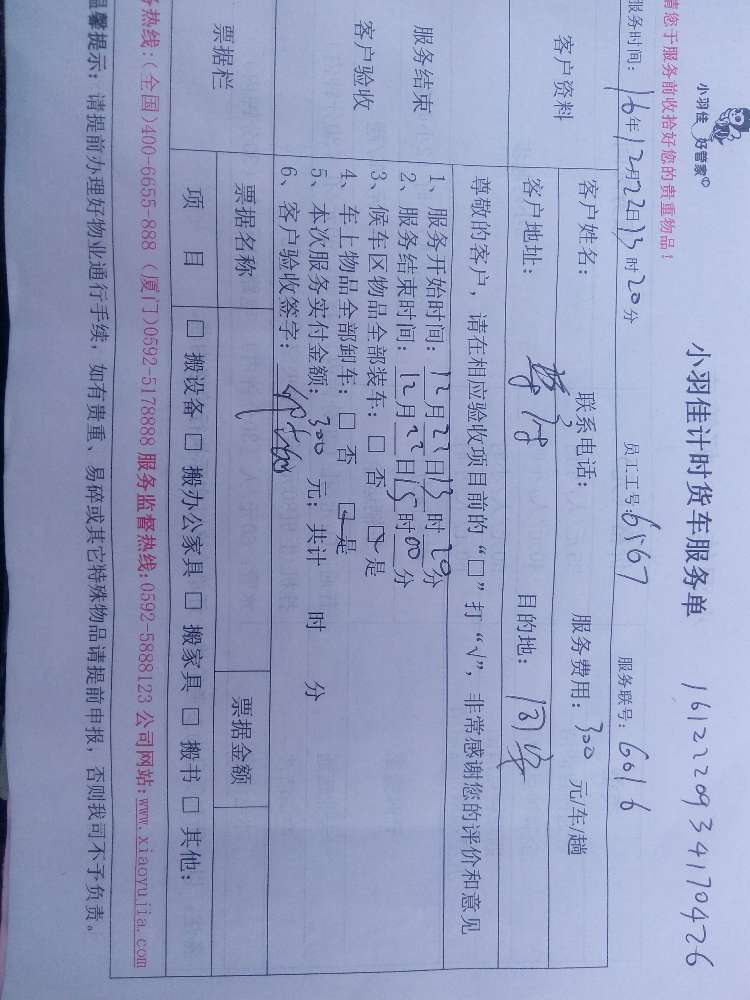 小羽佳 好管家©
小羽佳计时货车服务单 1612220934170426
请您于服务前收拾好您的贵重物品！
服务时间：16年12月22日13时20分 员工工号：6567 服务联号：6016
客户资料
客户姓名： 联系电话： 服务费用：300元/车/趟
客户地址： 目的地：同安
尊敬的客户，请在相应验收项目前的“□”打“√”，非常感谢您的评价和意见
服务结束
客户验收
1、服务开始时间：12月22日13时20分
2、服务结束时间：12月22日15时00分
3、候车区物品全部装车：□ 否 ☑是
4、车上物品全部卸车：□ 否 ☑是
5、本次服务实付金额：300元；共计 时 分
6、客户验收签字：
票据栏 票据名称 票据金额
项 目 □ 搬设备 □ 搬办公家具 □ 搬家具 □ 搬书 □ 其他：
务热线:(全国)400-6655-888 (厦门)0592-5178888 服务监督热线:0592-5888123 公司网站:www.xiaoyujia.com
温馨提示：请提前办理好物业通行手续，如有贵重、易碎或其它特殊物品请提前申报，否则我司不予负责。